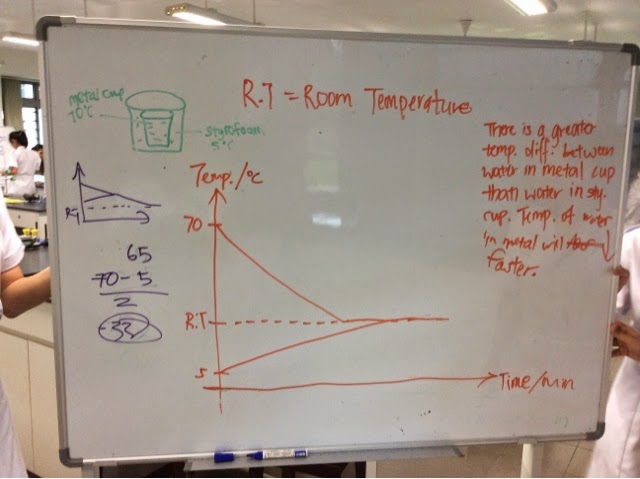 R.T = Room Temperature
metal cup
70°C
styrofoam
5°C
There is a greater
temp. diff. between
water in metal cup
than water in sty.
cup. Temp. of water
in metal will ↓
faster.
Temp./°C
70
R.T
5
Time/min
R.T
65
70-5
2